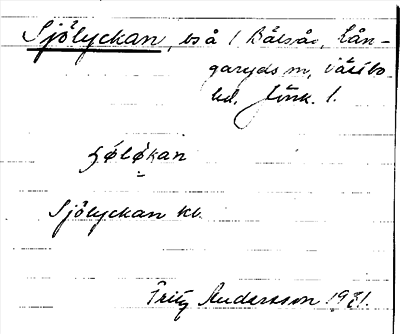 Sjölyckan, bs å 1 Båtsåo, Lån-
garyds sn, Västbo
hd. Jönk. l.
Sjölyckan kb.
Fritz Andersson 1931.